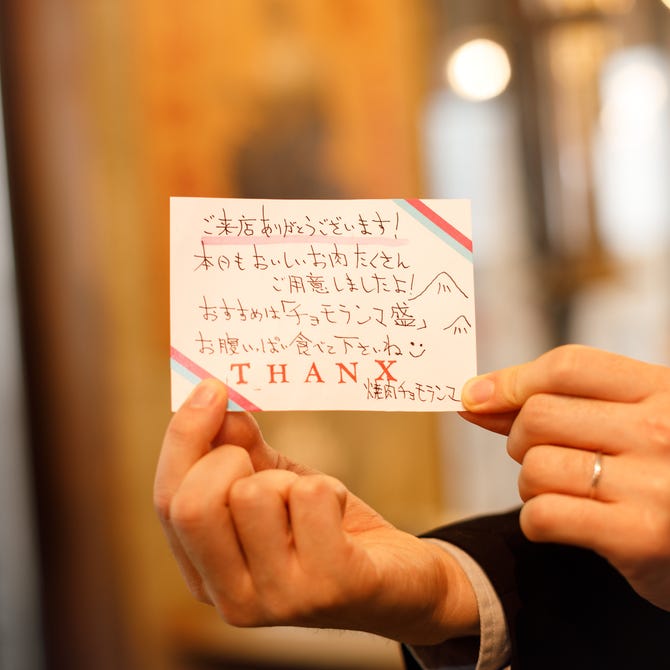 ご来店ありがとうございます!
本日もおいしいお肉たくさん
ご用意しましたよ!
おすすめは「チョモランマ盛」
お腹いっぱい食べて下さいね
THANX
焼肉チョモランマ